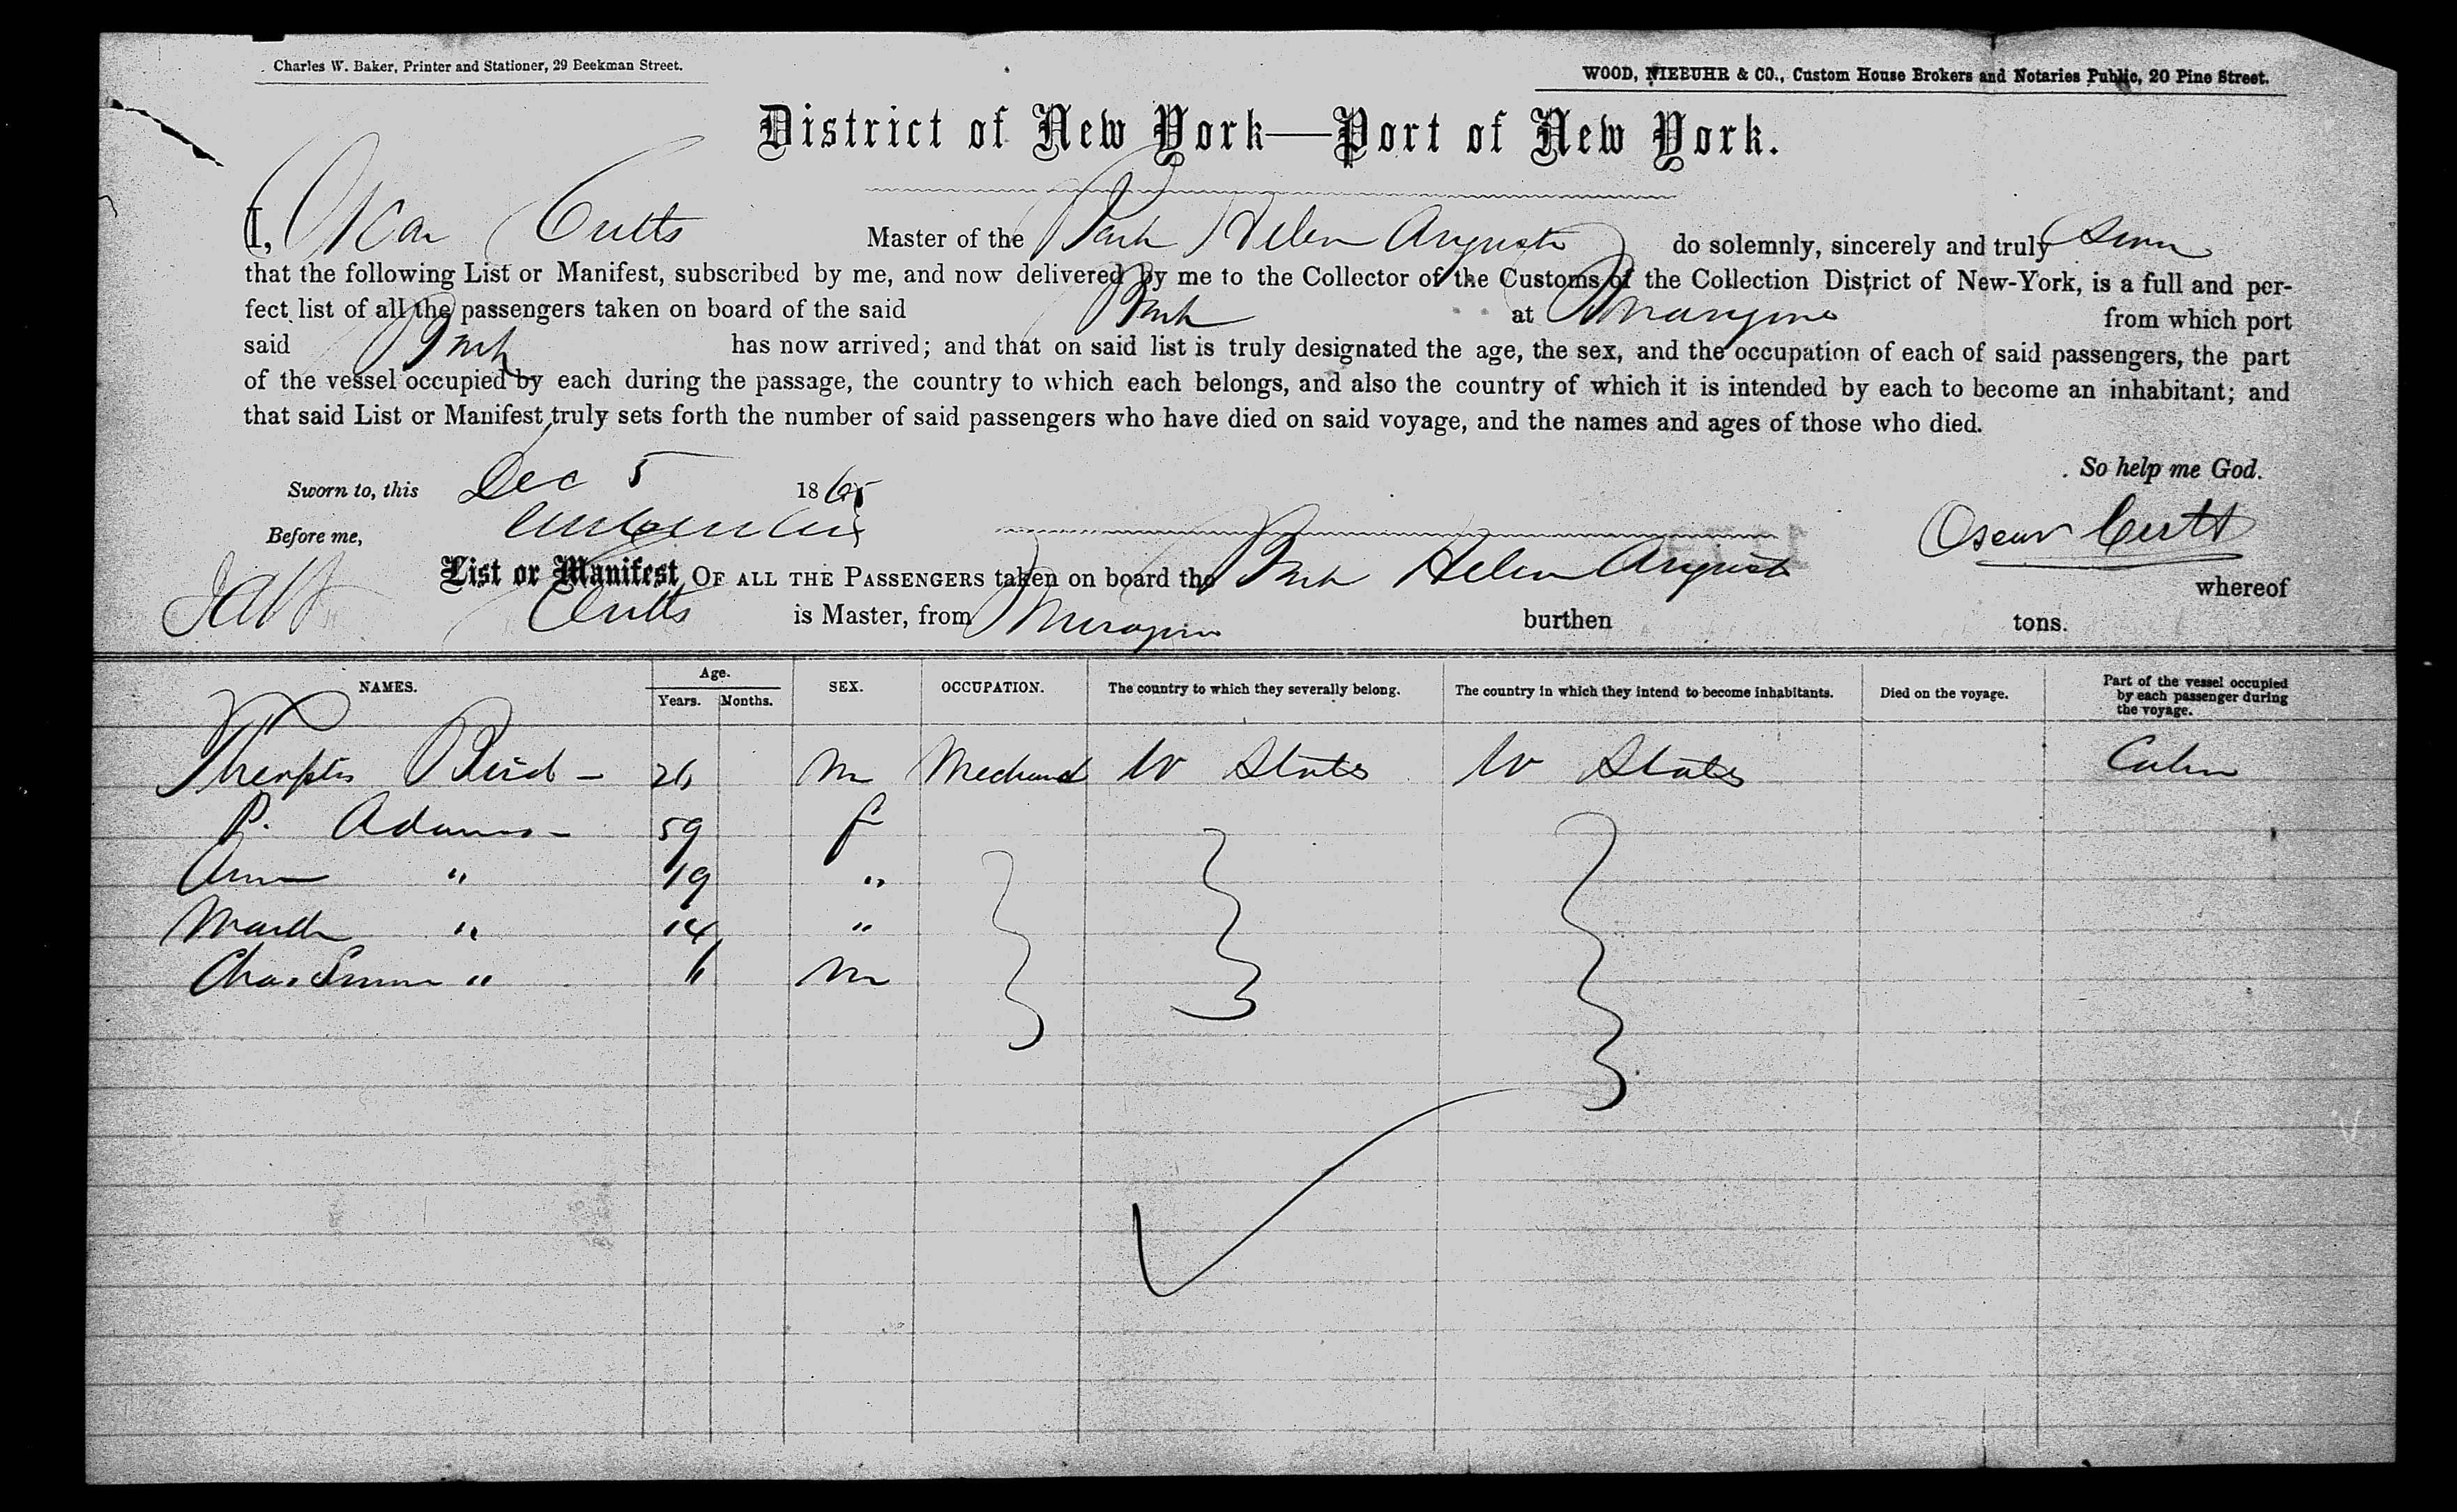 Charles W. Baker, Printer and Stationer, 29 Beekman Street.
WOOD, NIEBUHR & CO., Custom House Brokers and Notaries Public, 20 Pine Street.
District of New York—Port of New York.
I, Oscar Cutts Master of the Bark Helen Augusta do solemnly, sincerely and truly Swear
that the following List or Manifest, subscribed by me, and now delivered by me to the Collector of the Customs of the Collection District of New-York, is a full and per-
fect list of all the passengers taken on board of the said Bark at from which port
said Bark has now arrived; and that on said list is truly designated the age, the sex, and the occupation of each of said passengers, the part
of the vessel occupied by each during the passage, the country to which each belongs, and also the country of which it is intended by each to become an inhabitant; and
that said List or Manifest truly sets forth the number of said passengers who have died on said voyage, and the names and ages of those who died.
So help me God.
Sworn to, this Dec 5 1865
Before me, Oscar Cutts
List or Manifest OF ALL THE PASSENGERS taken on board the Bark Helen Augusta whereof
Cutts is Master, from burthen tons.
NAMES. Age. Years. Months. SEX. OCCUPATION. The country to which they severally belong. The country in which they intend to become inhabitants. Died on the voyage. Part of the vessel occupied by each passenger during the voyage.
26 M U States U States Cabin
P. Adams - 59 F
Ann " 19 "
Martha " 14 "
Chas " M